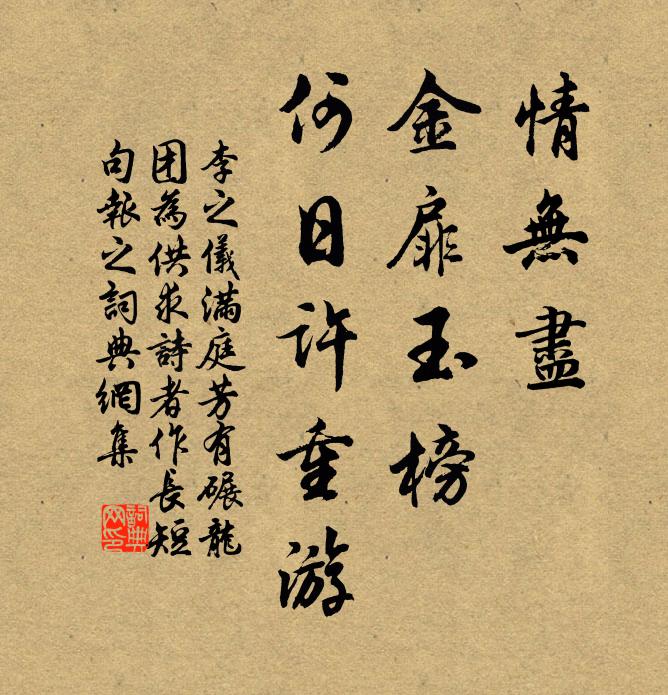 情無盡
金扉玉榜
何日許重游
李之儀滿庭芳有碾龍
团為供求詩者作長短
句報之詞典網集
詞典网印